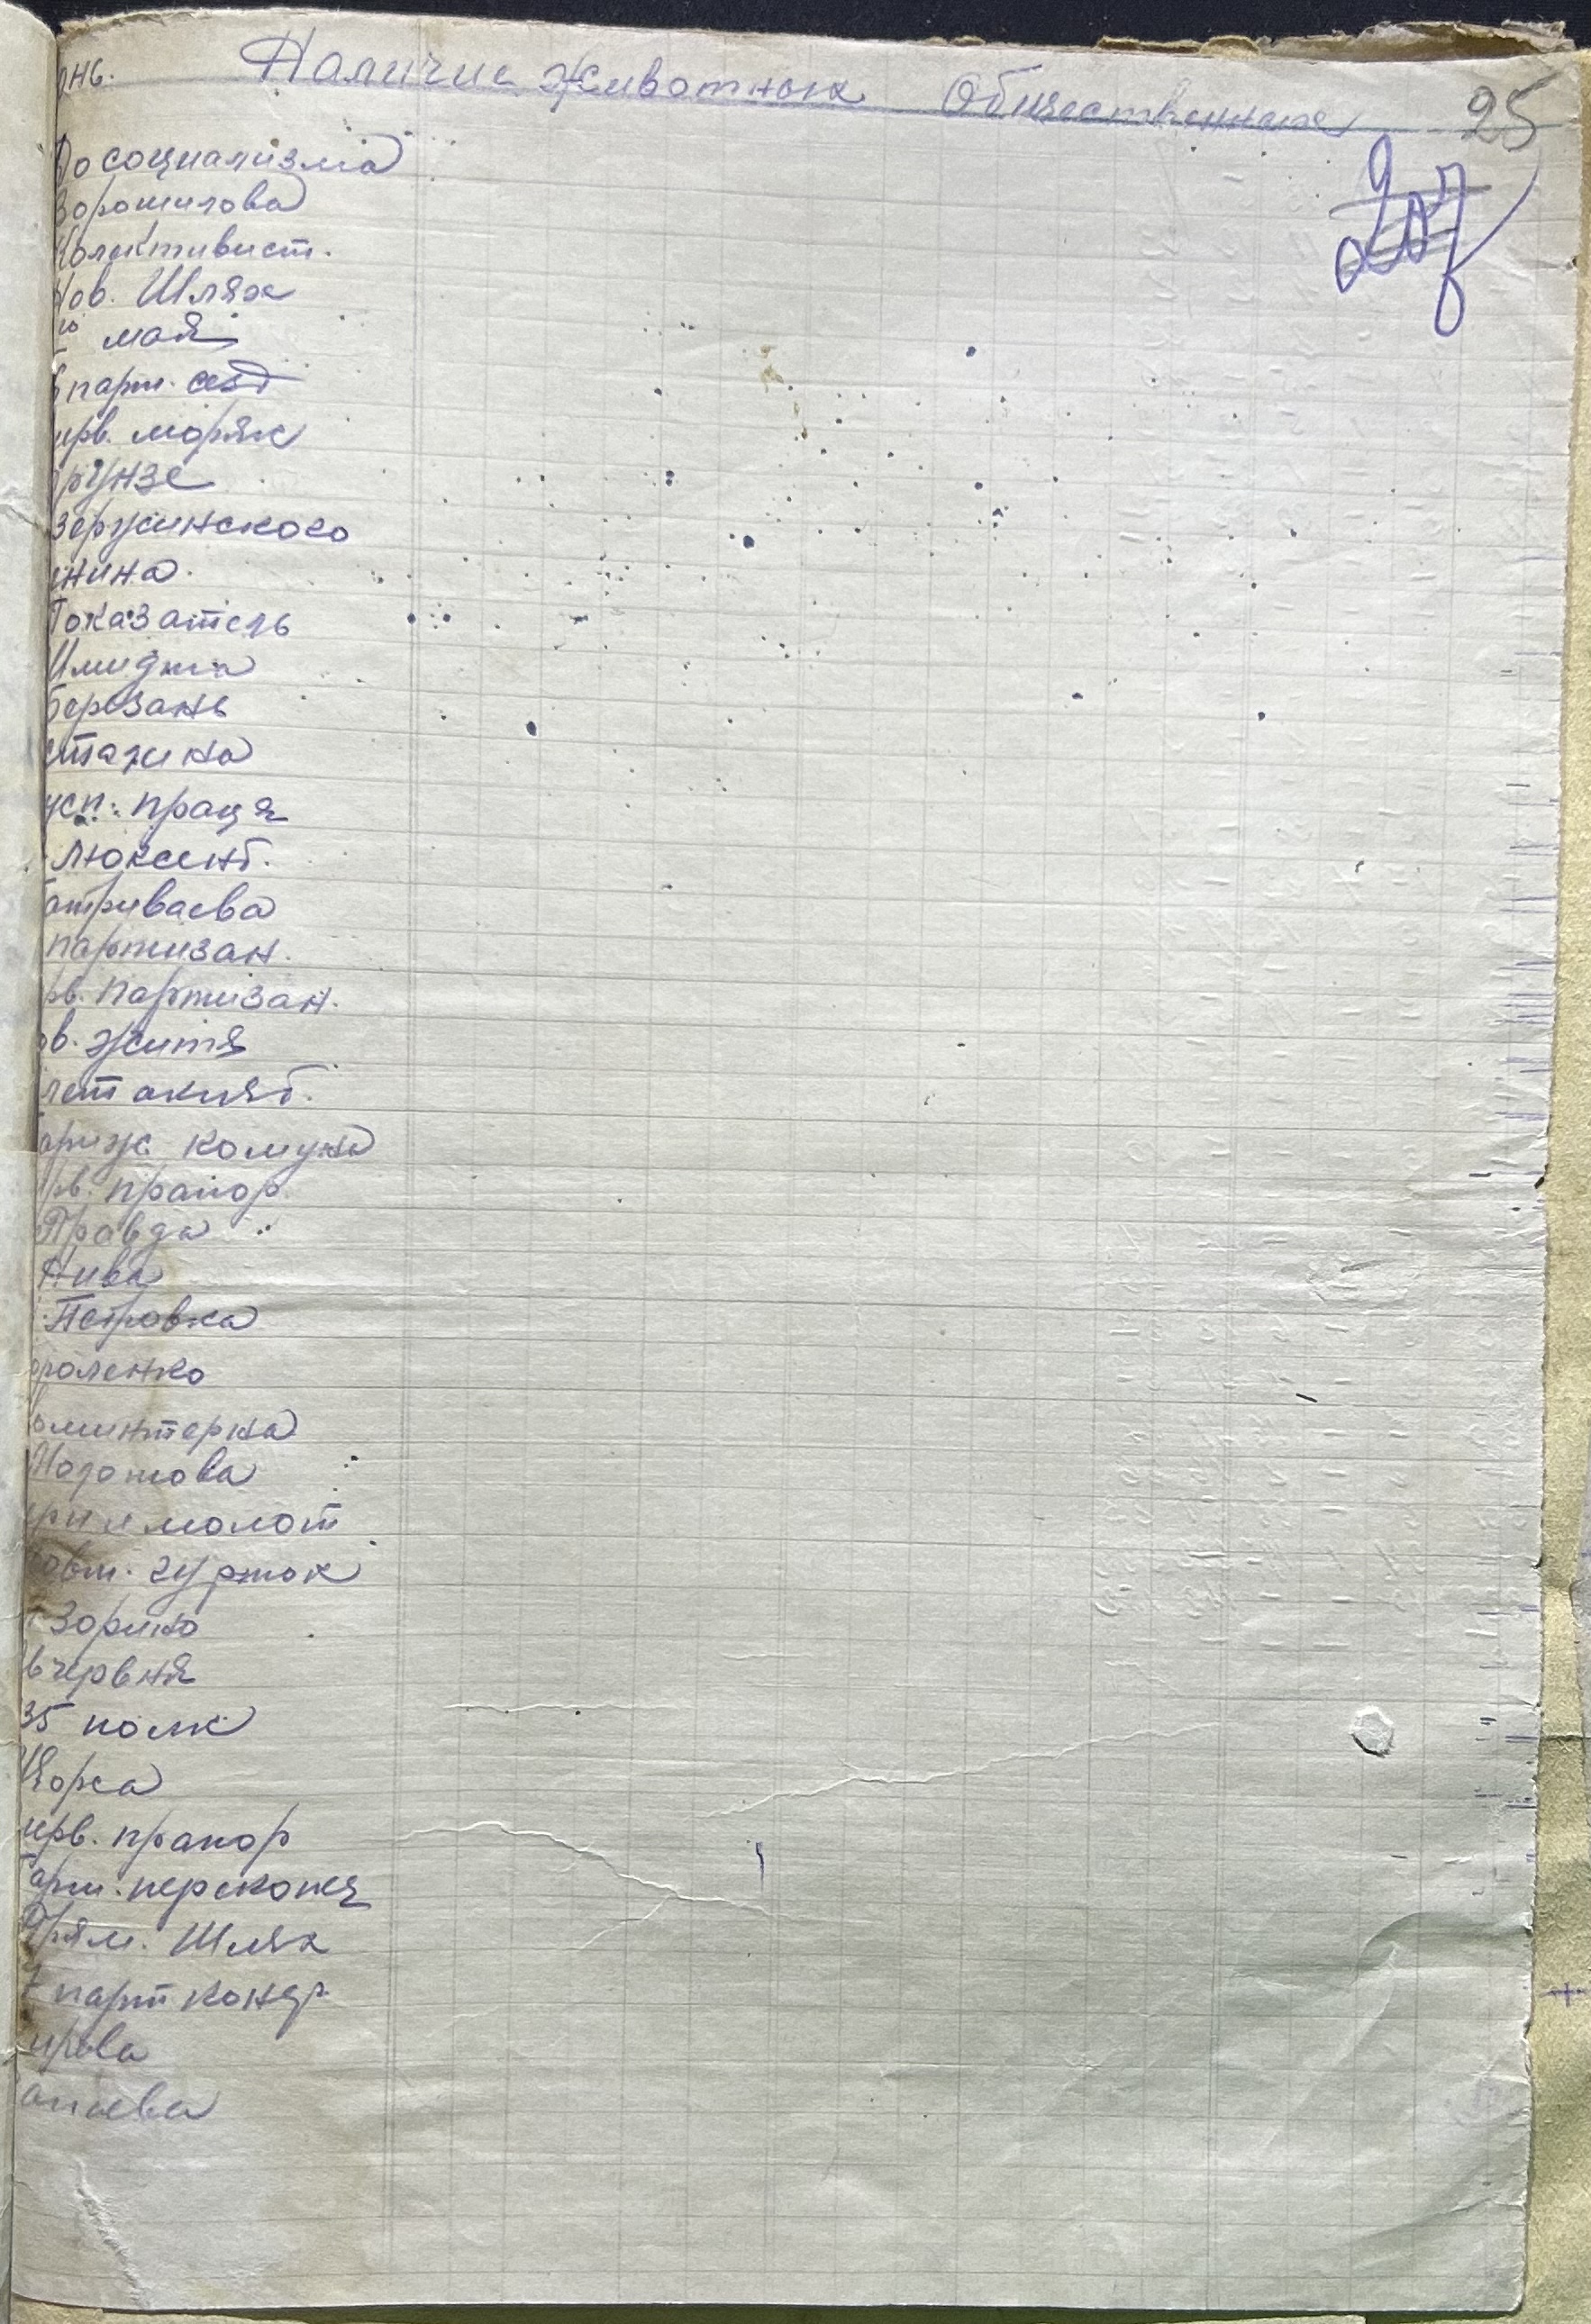 янь. Наличие животных Общественная 25
207
До социализма
Ворошилова
Колективист.
Нов. Шлях
го мая
парт. съезд
ерв. моряк
Фрунзе
зержинского
енина.
Показатель
Шмидта
березань
сталина
усп. праця
Люксенб.
атриваева
партизан.
рв. партизан.
ов. життя
лет октяб.
ариж. комуна
рв. прапор.
Правда
Нива
Петровка
ороленко
оминтерна
Молотова
ерп и молот
овт. гурток
Зорина
червня
35 полк
Щорса
черв. прапор
арт. перекопця
Прям. Шлях
7 парт конф
ирова
апаева